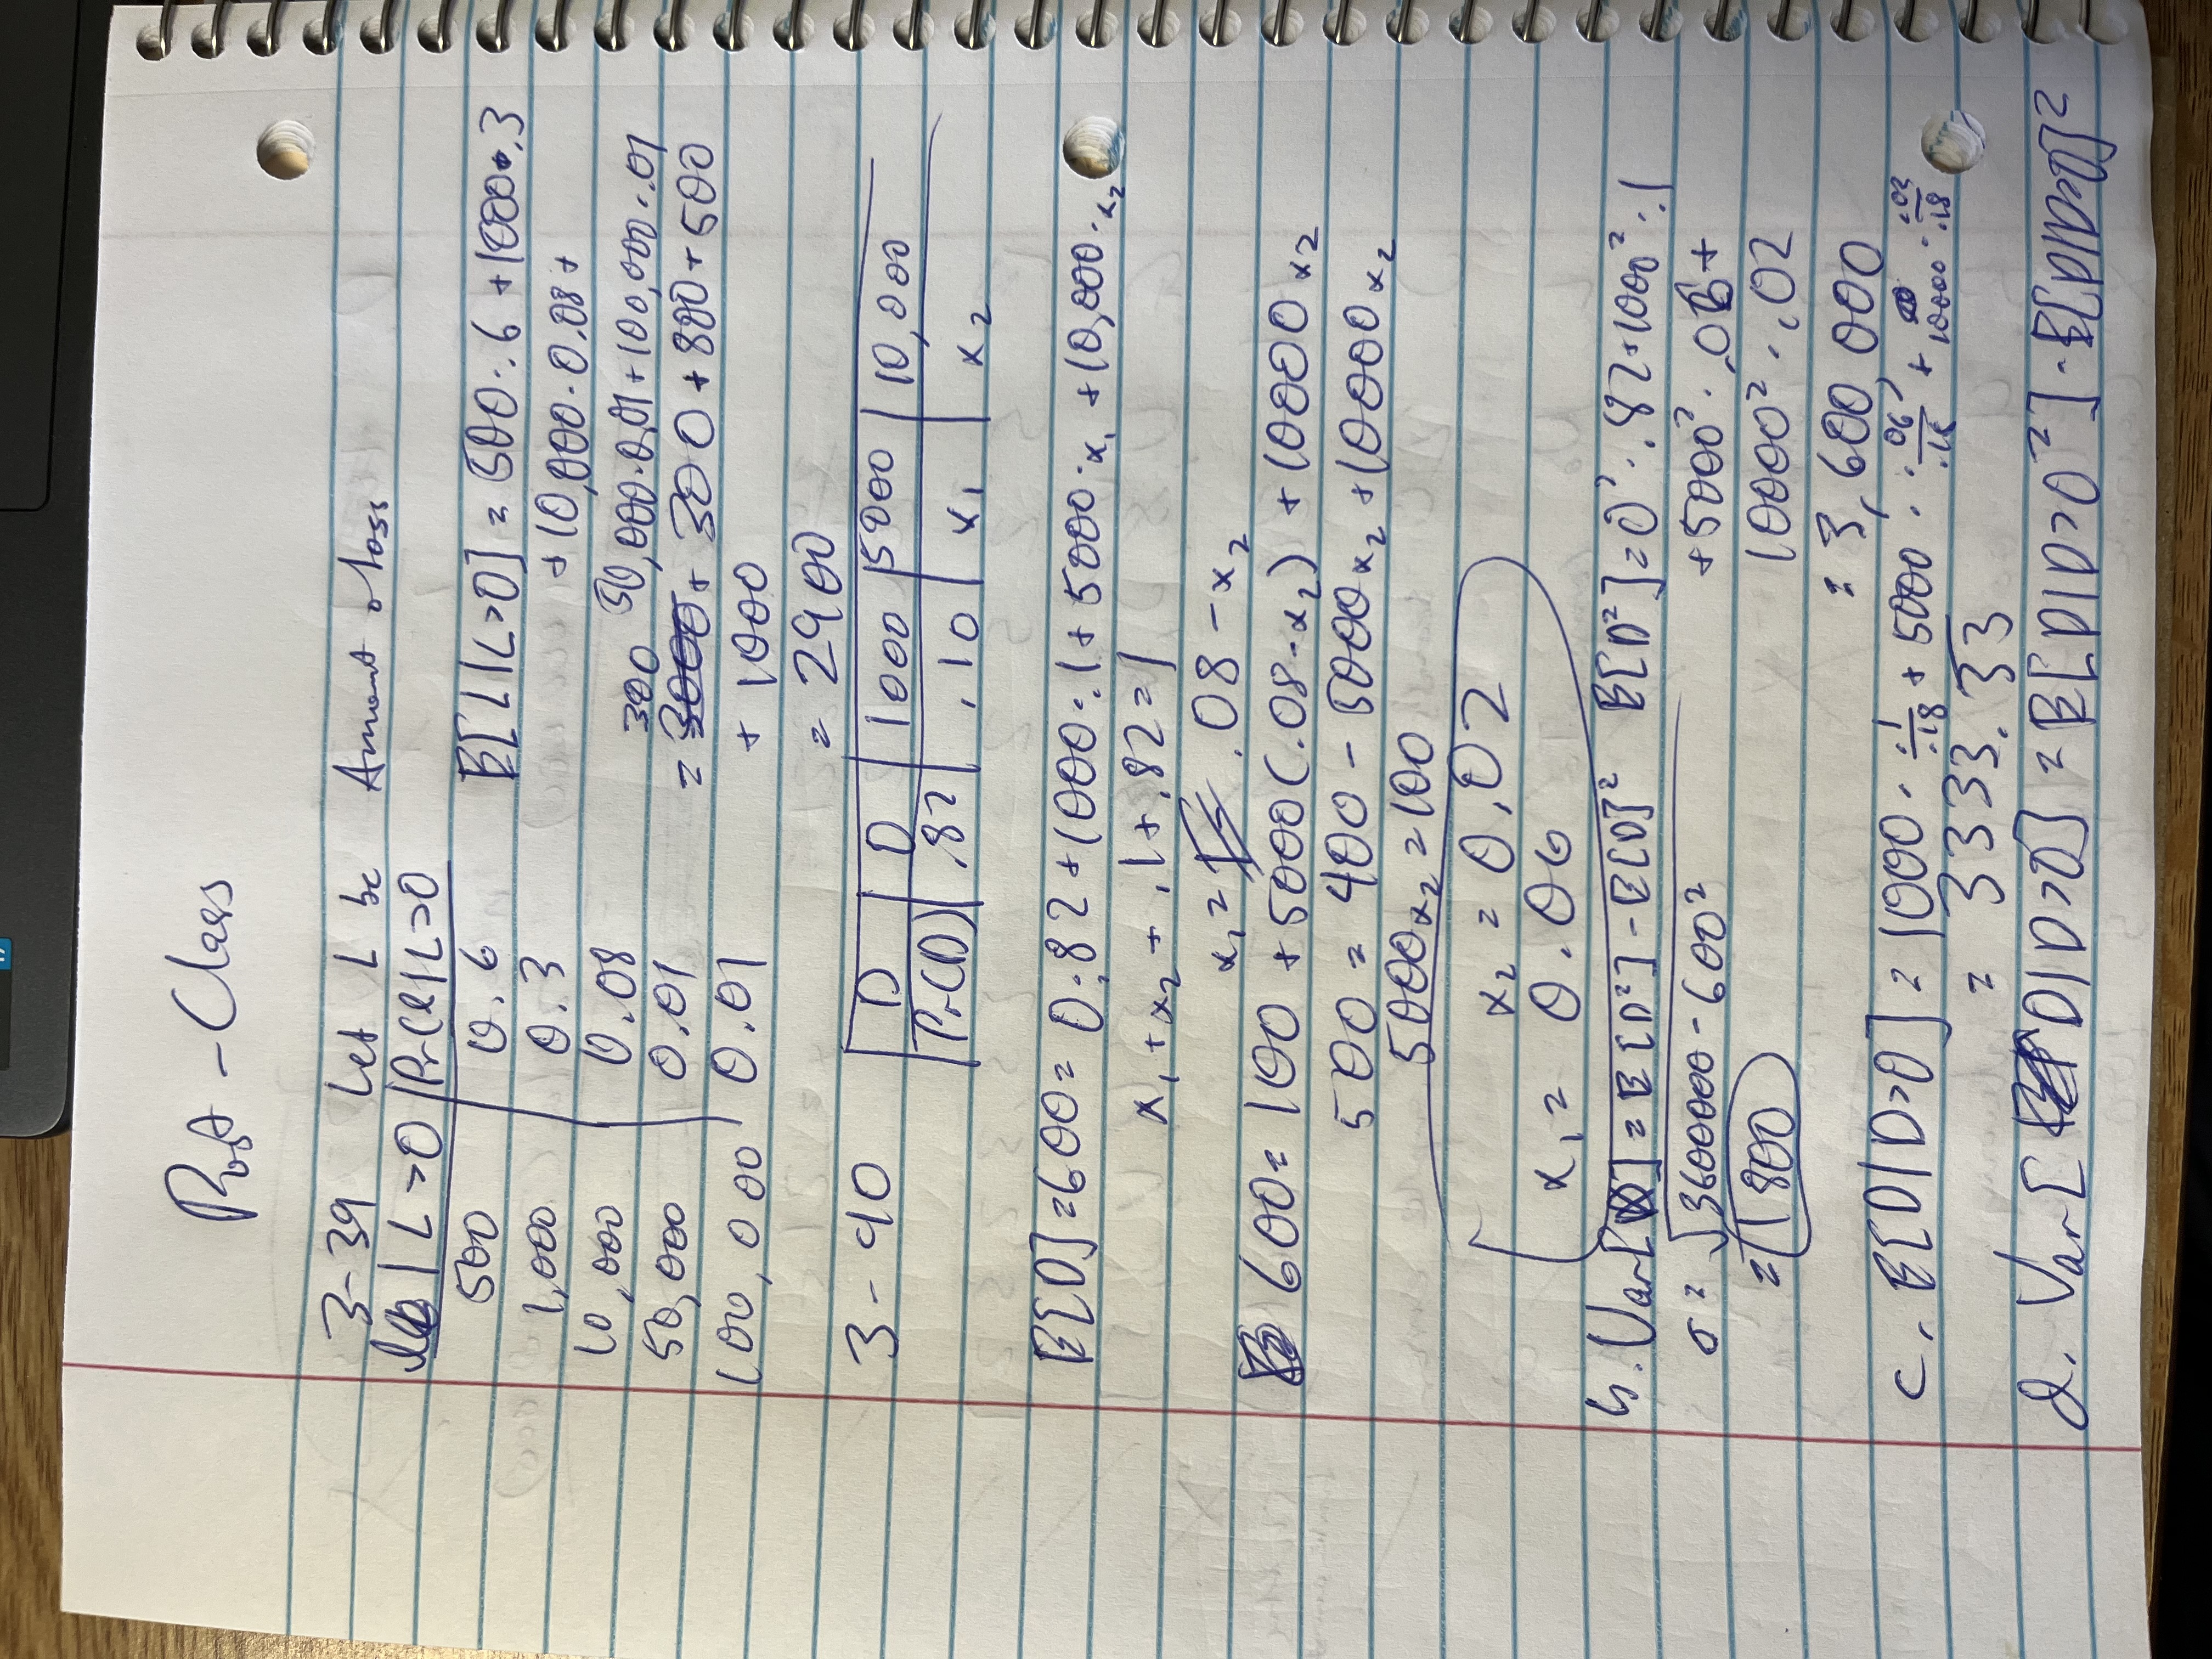 3-39 Let L be Amount of loss
L>0 | Pr(L|L>0
500 0.6 E[L|L>0] = 500·.6 + 1000·.3
1,000 0.3 +10,000·0.08 +
10,000 0.08 50,000·0.01 + 100,000·.01
50,000 0.01 = 300 + 300 + 800 + 500
100,000 0.01 + 1000
= 2900
3-40
D | 0 | 1000 | 5000 | 10,000
Pr(D) | .82 | .10 | x1 | x2
E[D] = 600 = 0·.82 + 1000·.1 + 5000·x1 + 10,000·x2
x1 + x2 + .1 + .82 = 1
x1 = .08 - x2
600 = 100 + 5000(.08 - x2) + 10000x2
500 = 400 - 5000x2 + 10000x2
5000x2 = 100
x2 = 0.02
x1 = 0.06
b. Var[] = E[D²] - E[D]² E[D²] = 0²·.82 + 1000²·.1
σ = √3600000 - 600² + 5000²·.06 +
= 1800 10000²·.02
= 3,600,000
c. E[D|D>0] = 1000·.1/.18 + 5000·.06/.18 + 10000·.02/.18
= 3333.33
d. Var[D|D>0] = E[D|D>0²] - E[D|D>0]²